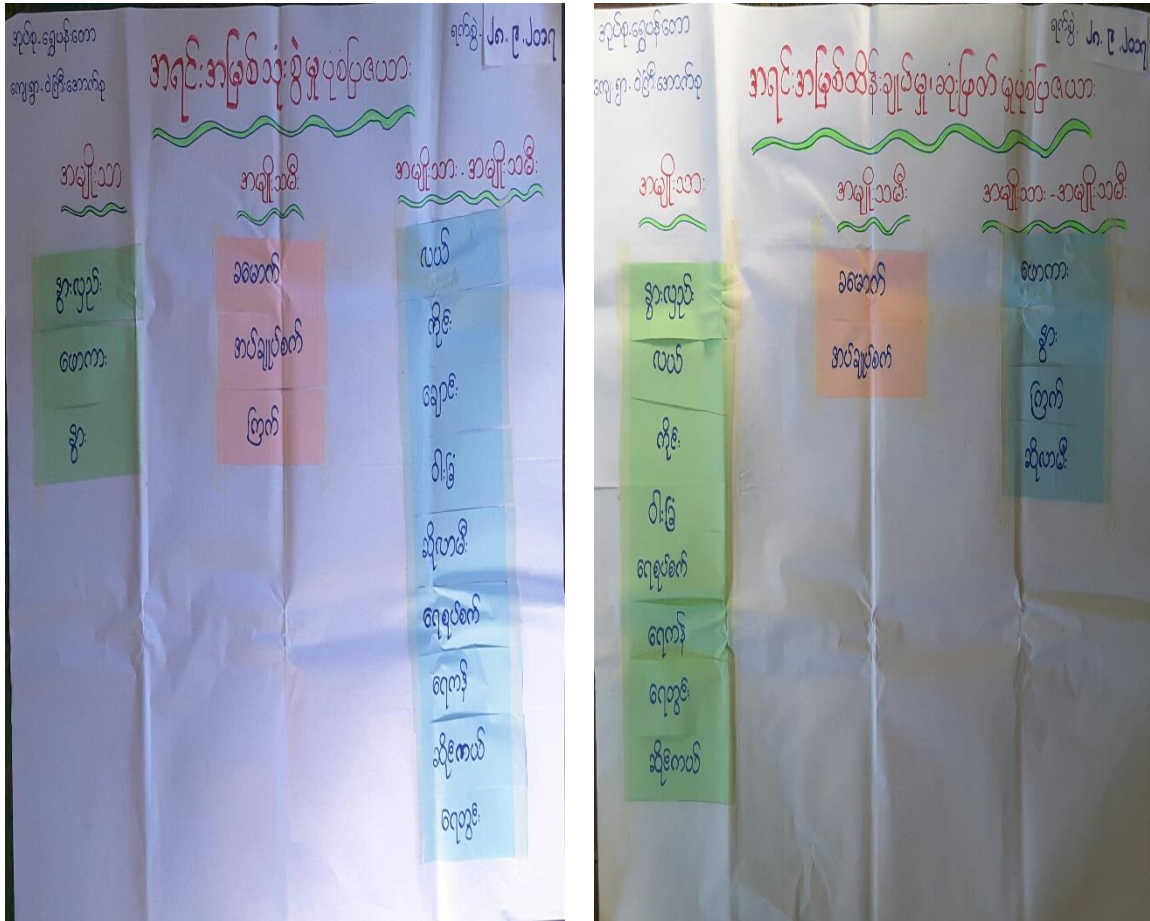 အုပ်စု-ရွှေပန်းတော
ကျေးရွာ-ဝဲကြီးအောက်စု
ရက်စွဲ၊ ၂၈.၉.၂၀၁၇
အရင်းအမြစ်သုံးစွဲမှုပုံစံပြဇယား
အမျိုးသား
နွားလှည်း
ဖောကား
နွား
အမျိုးသမီး
ခမောက်
အပ်ချုပ်စက်
ကြက်
အမျိုးသား - အမျိုးသမီး
လယ်
ကိုင်း
ချောင်း
ဝါးခြံ
ဆိုလာမီး
ရေစုပ်စက်
ရေကန်
ဆိုင်ကယ်
ရေတွင်း
အုပ်စု-ရွှေပန်းတော
ကျေးရွာ-ဝဲကြီးအောက်စု
ရက်စွဲ၊ ၂၈.၉.၂၀၁၇
အရင်းအမြစ်ထိန်းချုပ်မှု၊ဆုံးဖြတ်မှုပုံစံပြဇယား
အမျိုးသား
နွားလှည်း
လယ်
ကိုင်း
ဝါးခြံ
ရေစုပ်စက်
ရေကန်
ရေတွင်း
ဆိုင်ကယ်
အမျိုးသမီး
ခမောက်
အပ်ချုပ်စက်
အမျိုးသား - အမျိုးသမီး
ဖောကား
နွား
ကြက်
ဆိုလာမီး